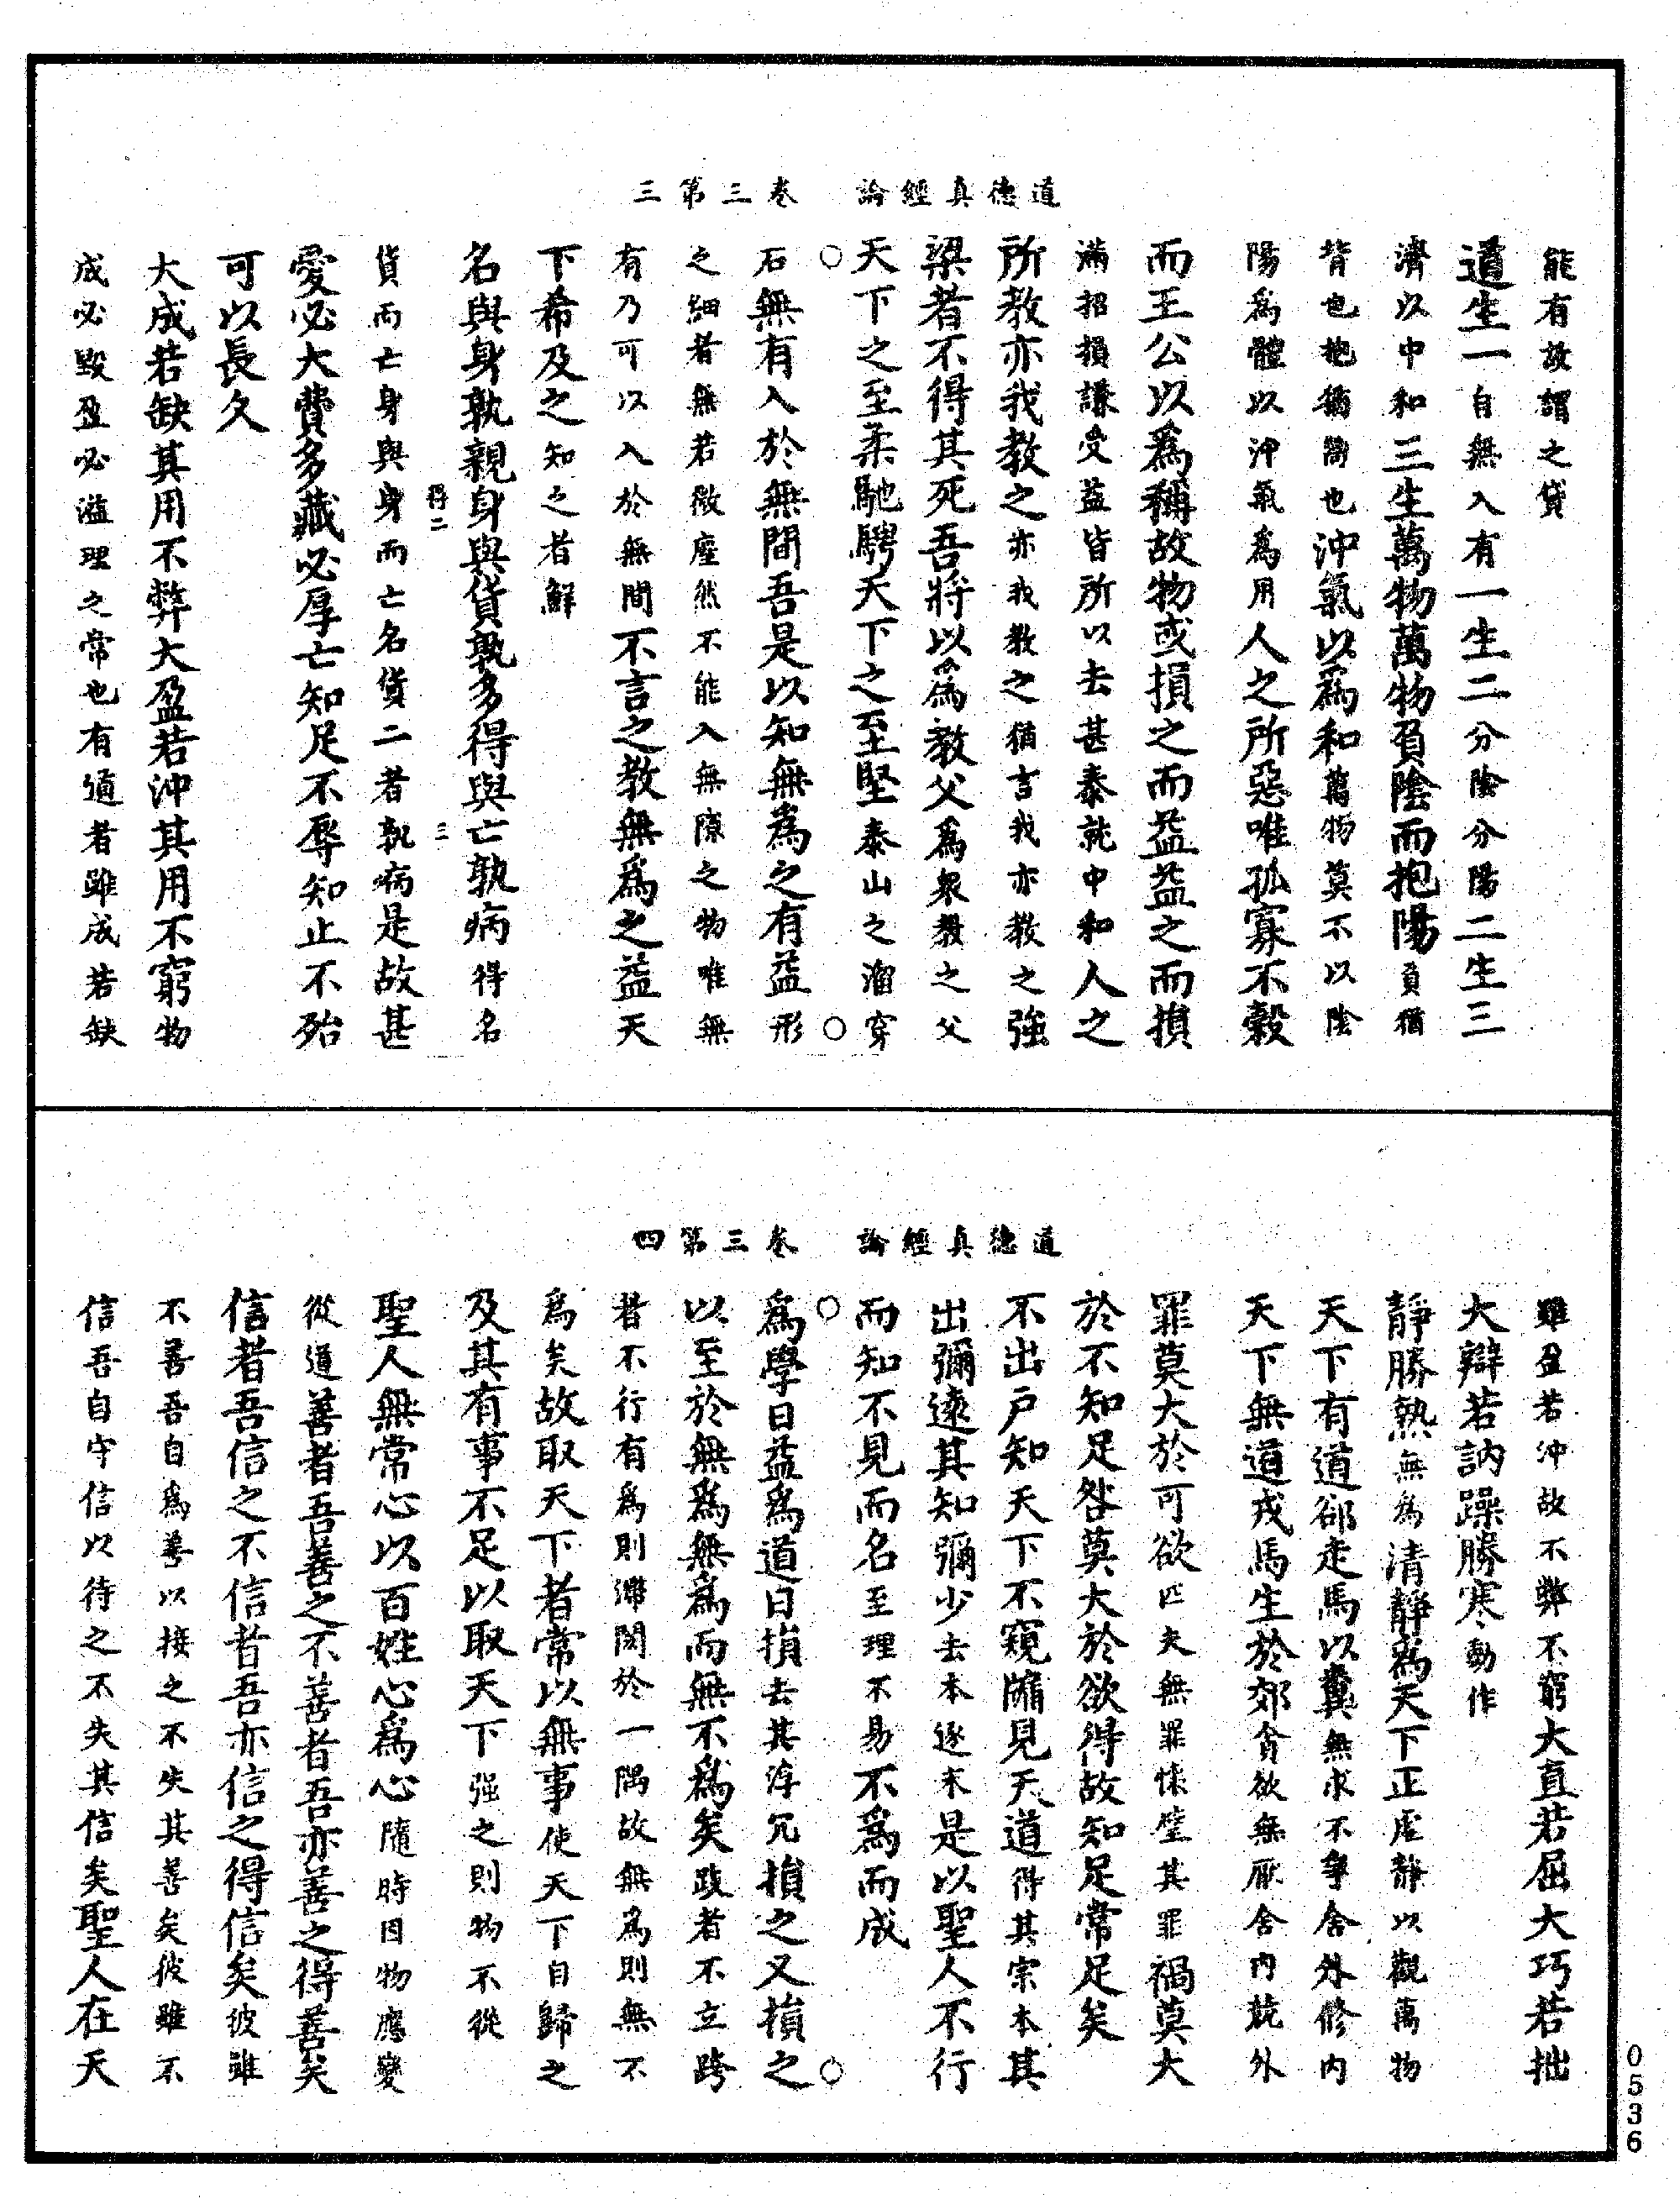 道德真經論　卷三第三
能有故謂之貸
道生一自無入有一生二分陰分陽二生三
濟以中和三生萬物萬物負陰而抱陽負猶
背也抱猶嚮也沖氣以為和萬物莫不以陰
陽為體以沖氣為用人之所惡唯孤寡不穀
而王公以為稱故物或損之而益益之而損
滿招損謙受益皆所以去甚泰就中和人之
所教亦我教之亦我教之猶言我亦教之強
梁者不得其死吾將以為教父為衆教之父
天下之至柔馳騁天下之至堅泰山之溜穿
石無有入於無間吾是以知無為之有益形
之細者無若微塵然不能入無隙之物唯無
有乃可以入於無間不言之教無為之益天
下希及之知之者鮮
名與身孰親身與貨孰多得與亡孰病得名
貨而亡身與身而亡名貨二者孰病是故甚
愛必大費多藏必厚亡知足不辱知止不殆
可以長久
大成若缺其用不弊大盈若沖其用不窮物
成必毀盈必溢理之常也有道者雖成若缺
道德真經論　卷三第四
雖盈若沖故不弊不窮大直若屈大巧若拙
大辯若訥躁勝寒動作
靜勝熱無為清靜為天下正虛靜以觀萬物
天下有道郤走馬以糞無求不爭舍外修內
天下無道戎馬生於郊貪欲無厭舍內競外
罪莫大於可欲匹夫無罪懷璧其罪禍莫大
於不知足咎莫大於欲得故知足常足矣
不出戶知天下不窺牖見天道得其宗本其
出彌遠其知彌少去本逐末是以聖人不行
而知不見而名至理不易不為而成
為學日益為道日損去其浮冗損之又損之
以至於無為無為而無不為矣跂者不立跨
者不行有為則滯閡於一隅故無為則無不
為矣故取天下者常以無事使天下自歸之
及其有事不足以取天下强之則物不從
聖人無常心以百姓心為心隨時因物應變
從道善者吾善之不善者吾亦善之得善矣
信者吾信之不信者吾亦信之得信矣彼雖
不善吾自為善以接之不失其善矣彼雖不
信吾自守信以待之不失其信矣聖人在天
0536